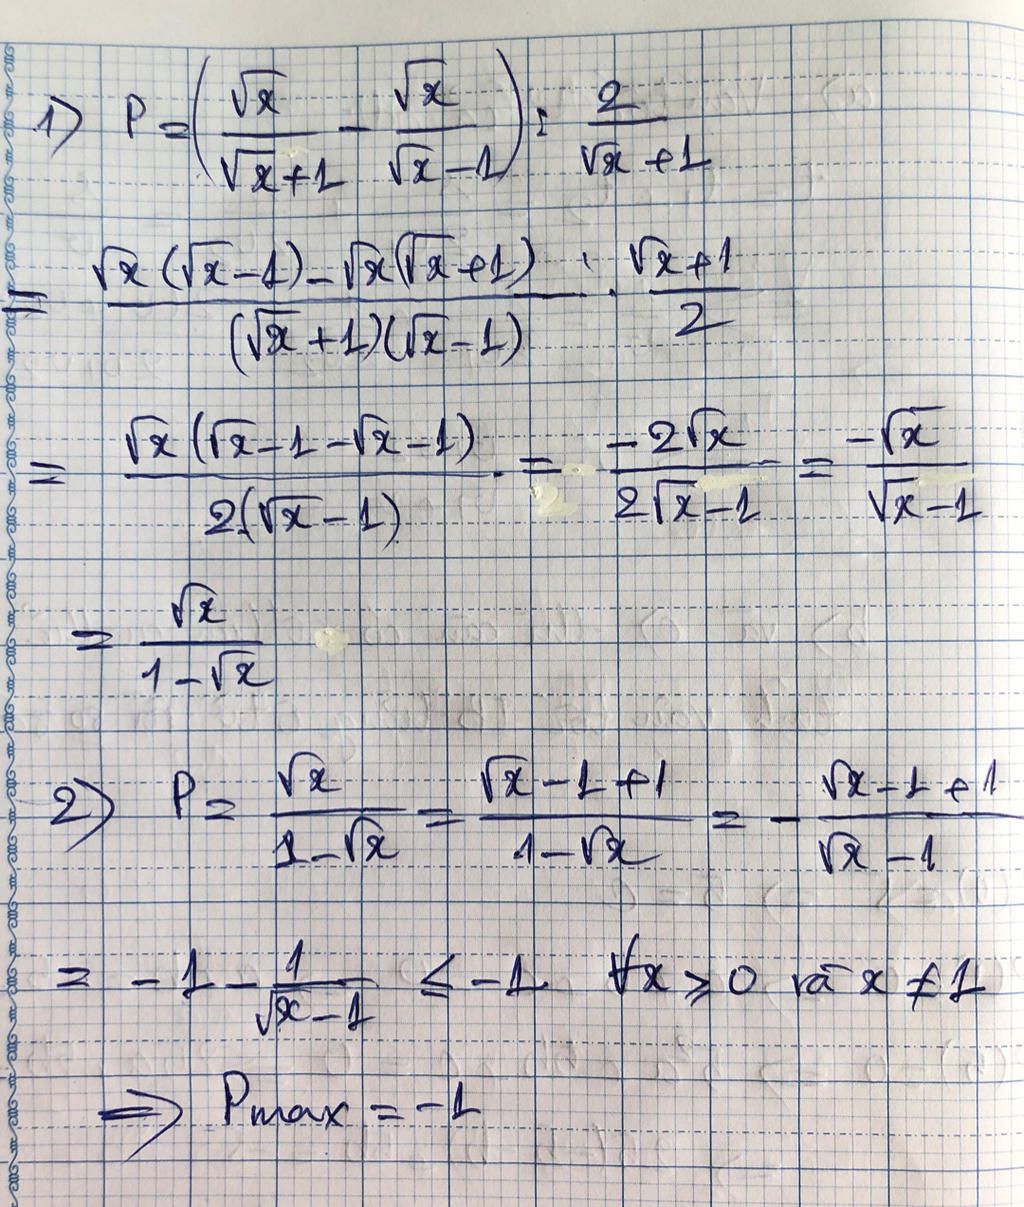 1) P = (√x/(√x+1) - √x/(√x-1)) : 2/(√x+1)
= (√x(√x-1)-√x(√x+1))/((√x+1)(√x-1)) . (√x+1)/2
= √x(√x-1-√x-1)/(2(√x-1)) = -2√x/(2√x-1) = -√x/(√x-1)
= √x/(1-√x)
2) P = √x/(1-√x) = (√x-1+1)/(1-√x) = -(√x-1+1)/(√x-1)
= -1 - 1/(√x-1) ≤ -1 ∀x ≥ 0 và x ≠ 1
=> Pmax = -1